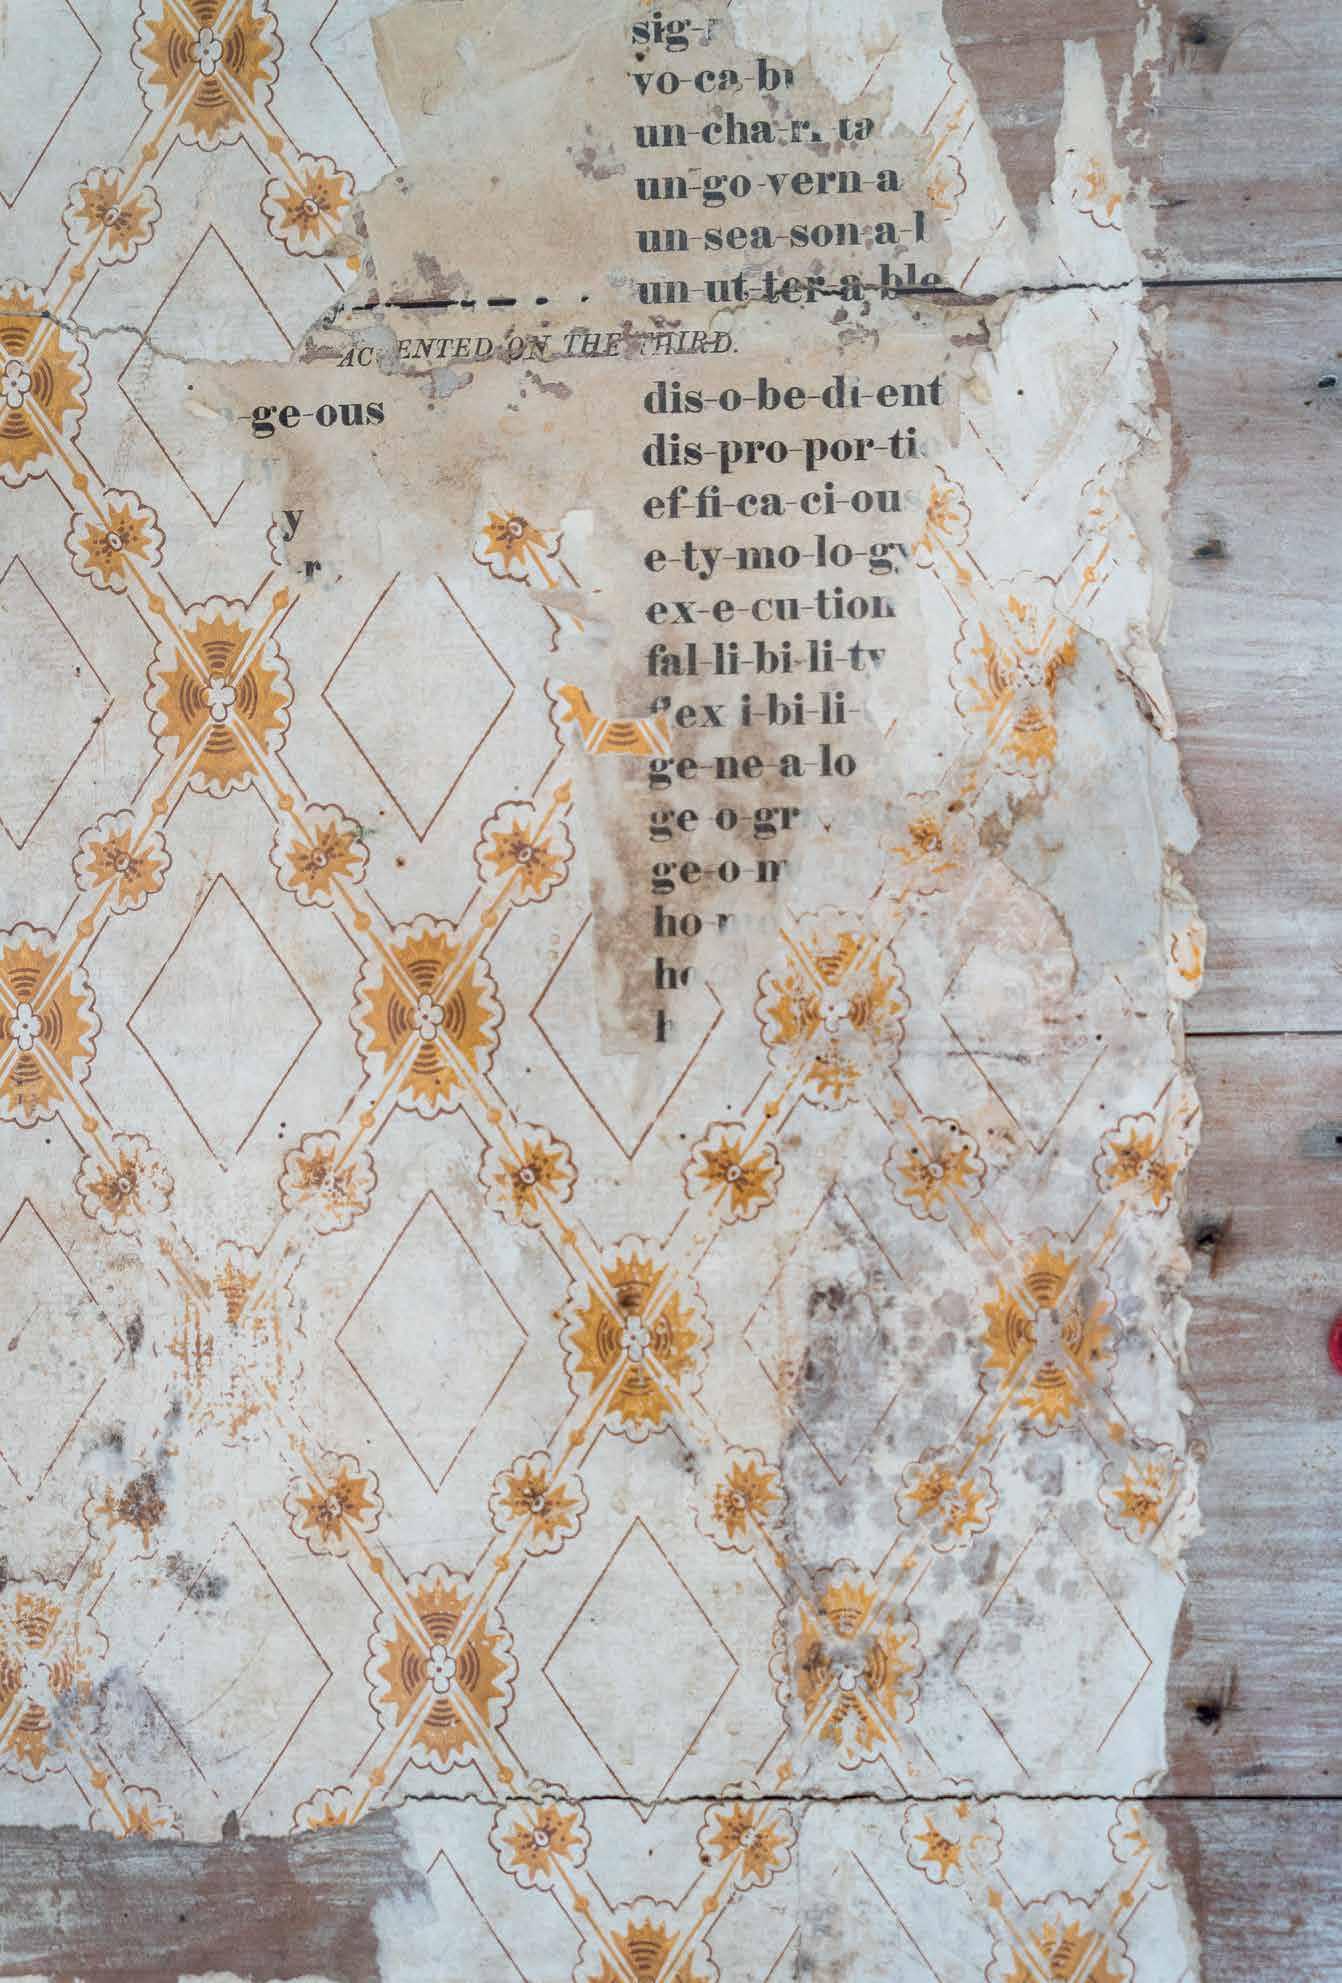 sig-
vo-ca-b
un-cha-r. ta
un-go-vern-a
un-sea-son-a-b
un-ut-ter-a-ble
ACCENTED ON THE THIRD.
-ge-ous
dis-o-be-di-ent
dis-pro-por-ti
y
ef-fi-ca-ci-ous
-r
e-ty-mo-lo-gy
ex-e-cu-tion
fal-li-bi-li-ty
flex i-bi-li-
ge-ne-a-lo
ge-o-gr
ge-o-m
ho-m
ho
h